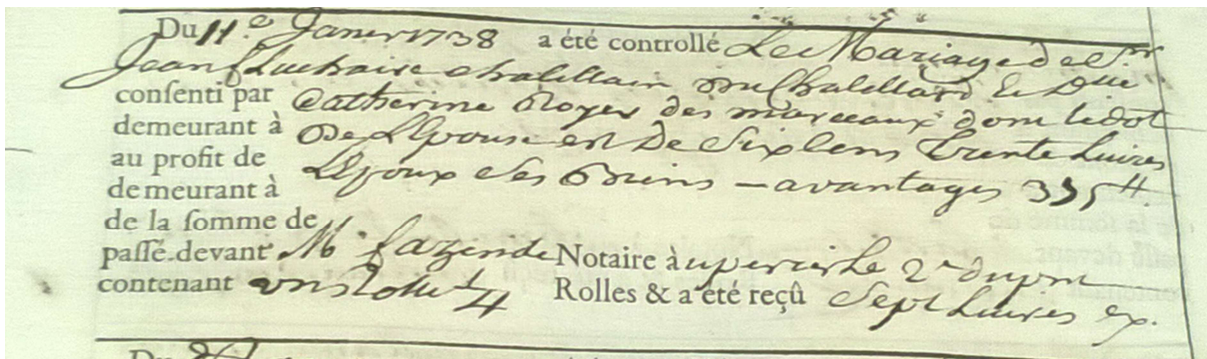 Du 11.e Janvr 1738 a été controllé Le Mariage de Sr.
Jean Luchaire chatellain du Chatellard & Dlle
consenti par Catherine Royer des marceaux dont la dot
demeurant à De L'Epouse est De Six Cens Trente Livres
au profit de L'Epoux Ses Biens – avantages 315 ₶.
demeurant à
de la somme de
passé devant Me. fazende Notaire à le 2e du pnt
contenant un Rolle 1/4 Rolles & a été reçû Sept Livres
Du